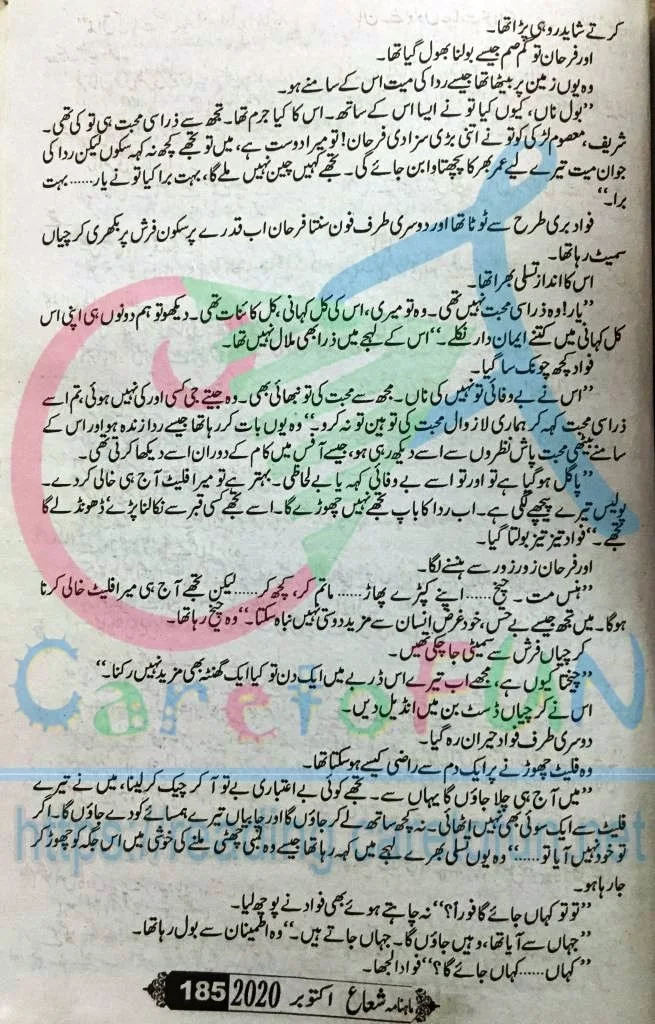 کرتے شاید رو ہی پڑا تھا۔
اور فرحان تو گم صم جیسے بولنا بھول گیا تھا۔
وہ یوں زمین پر بیٹھا تھا جیسے ردا کی میت اس کے سامنے ہو۔
”بول ناں، کیوں کیا تو نے ایسا اس کے ساتھ۔ اس کا کیا جرم تھا۔ تجھ سے ذرا سی محبت ہی تو کی تھی۔
شریف، معصوم لڑکی کو تو نے اتنی بڑی سزا دی فرحان! تو میرا دوست ہے، میں تو تجھے کچھ نہ کہہ سکوں لیکن ردا کی
جوان میت تیرے لیے عمر بھر کا پچھتاوا بن جائے گی۔ تجھے کہیں چین نہیں ملے گا، بہت برا کیا تو نے یار...... بہت
برا۔“
فواد بری طرح سے ٹوٹا تھا اور دوسری طرف فون سنتا فرحان اب قدرے پرسکون فرش پر بکھری کرچیاں
سمیٹ رہا تھا۔
اس کا انداز تسلی بھرا تھا۔
”یار! وہ ذرا سی محبت نہیں تھی۔ وہ تو میری، اس کی کل کہانی، کل کائنات تھی۔ دیکھو تو ہم دونوں ہی اپنی اس
کل کہانی میں کتنے ایمان دار نکلے۔“ اس کے لہجے میں ذرا بھی ملال نہیں تھا۔
فواد کچھ چونک سا گیا۔
”اس نے بے وفائی تو نہیں کی ناں۔ مجھ سے محبت کی تو نبھائی بھی۔ وہ جیتے جی کسی اور کی نہیں ہوئی، تم اسے
ذرا سی محبت کہہ کر ہماری لازوال محبت کی توہین تو نہ کرو۔“ وہ یوں بات کر رہا تھا جیسے ردا زندہ ہو اور اس کے
سامنے بیٹھی محبت پاش نظروں سے اسے دیکھ رہی ہو، جیسے آفس میں کام کے دوران اسے دیکھا کرتی تھی۔
”پاگل ہو گیا ہے تو اور تو اسے بے وفائی کہہ یا بے لحاظی۔ بہتر ہے تو میرا فلیٹ آج ہی خالی کر دے۔
پولیس تیرے پیچھے لگی ہے۔ اب ردا کا باپ تجھے نہیں چھوڑے گا۔ اسے تجھے کسی قبر سے نکالنا پڑے ڈھونڈ لے گا
تجھے۔“ فواد تیز تیز بولتا گیا۔
اور فرحان زور زور سے ہنسنے لگا۔
”ہنس مت۔ چیخ...... اپنے کپڑے پھاڑ...... ماتم کر، کچھ کر...... لیکن تجھے آج ہی میرا فلیٹ خالی کرنا
ہو گا۔ میں تجھ جیسے بے حس، خود غرض انسان سے مزید دوستی نہیں نباہ سکتا۔“ وہ چیخ رہا تھا۔
کرچیاں فرش سے سمیٹی جا چکی تھیں۔
”چیختا کیوں ہے، مجھے اب تیرے اس ڈربے میں ایک دن تو کیا ایک گھنٹہ بھی مزید نہیں رکنا۔“
اس نے کرچیاں ڈسٹ بن میں انڈیل دیں۔
دوسری طرف فواد حیران رہ گیا۔
وہ فلیٹ چھوڑنے پر ایک دم سے راضی کیسے ہو سکتا تھا۔
”میں آج ہی چلا جاؤں گا یہاں سے۔ تجھے کوئی بے اعتباری ہے تو آ کر چیک کر لینا، میں نے تیرے
فلیٹ سے ایک سوئی بھی نہیں اٹھائی۔ نہ کچھ ساتھ لے کر جاؤں گا اور چابیاں تیرے ہمسائے کو دے جاؤں گا۔ اگر
تو خود نہیں آیا تو......“ وہ یوں تسلی بھرے لہجے میں کہہ رہا تھا جیسے وہ لمبی چھٹی ملنے کی خوشی میں اس جگہ کو چھوڑ کر
جا رہا ہو۔
”تو تو کہاں جائے گا فوراً؟“ نہ چاہتے ہوئے بھی فواد نے پوچھ لیا۔
”جہاں سے آیا تھا، وہیں جاؤں گا۔ جہاں جاتے ہیں۔“ وہ اطمینان سے بول رہا تھا۔
”کہاں...... کہاں جائے گا؟“ فواد الجھا۔
ماہنامہ شعاع اکتوبر 2020 185
CareFoFUN